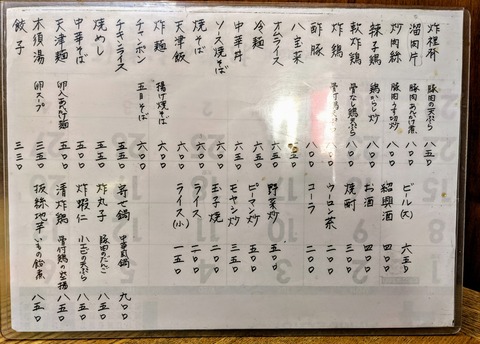 炸裡脊 豚肉の天ぷら 八五〇
溜肉片 豚肉あんかけ煮 八〇〇
炒肉絲 豚肉うす切炒 八〇〇
辣子鶏 鶏からし炒 八〇〇
軟炸鶏 骨なし鶏天ぷら 八〇〇
炸鶏 骨付鶏天ぷら 八〇〇
酢豚 八〇〇
八宝菜
オムライス 六〇〇
冷麺 六〇〇
中華丼 六〇〇
ソース焼そば 六〇〇
焼そば 六〇〇
天津飯 六〇〇
炸麺 揚げ焼そば 六〇〇
チャンポン 五目そば 六〇〇
チキンライス 五五〇
焼めし 五五〇
中華そば
天津麺 卵入あんかけ麺 五五〇
木須湯 卵スープ 三五〇
餃子 三三〇
ビール(大) 六五〇
紹興酒 四〇〇
お酒 四〇〇
焼酎 三五〇
ウーロン茶 二〇〇
コーラ 二〇〇
野菜炒 五〇〇
ピーマン炒 五〇〇
モヤシ炒 三五〇
玉子焼 二〇〇
ライス 二〇〇
ライス(小) 一五〇
寄せ鍋 中華風鍋 九〇〇
炸丸子 豚肉のだんご 八五〇
炸蝦仁 小エビの天ぷら 八五〇
清炸鶏 骨付鶏の空揚 八五〇
抜絲地芋 いもの飴煮 八五〇